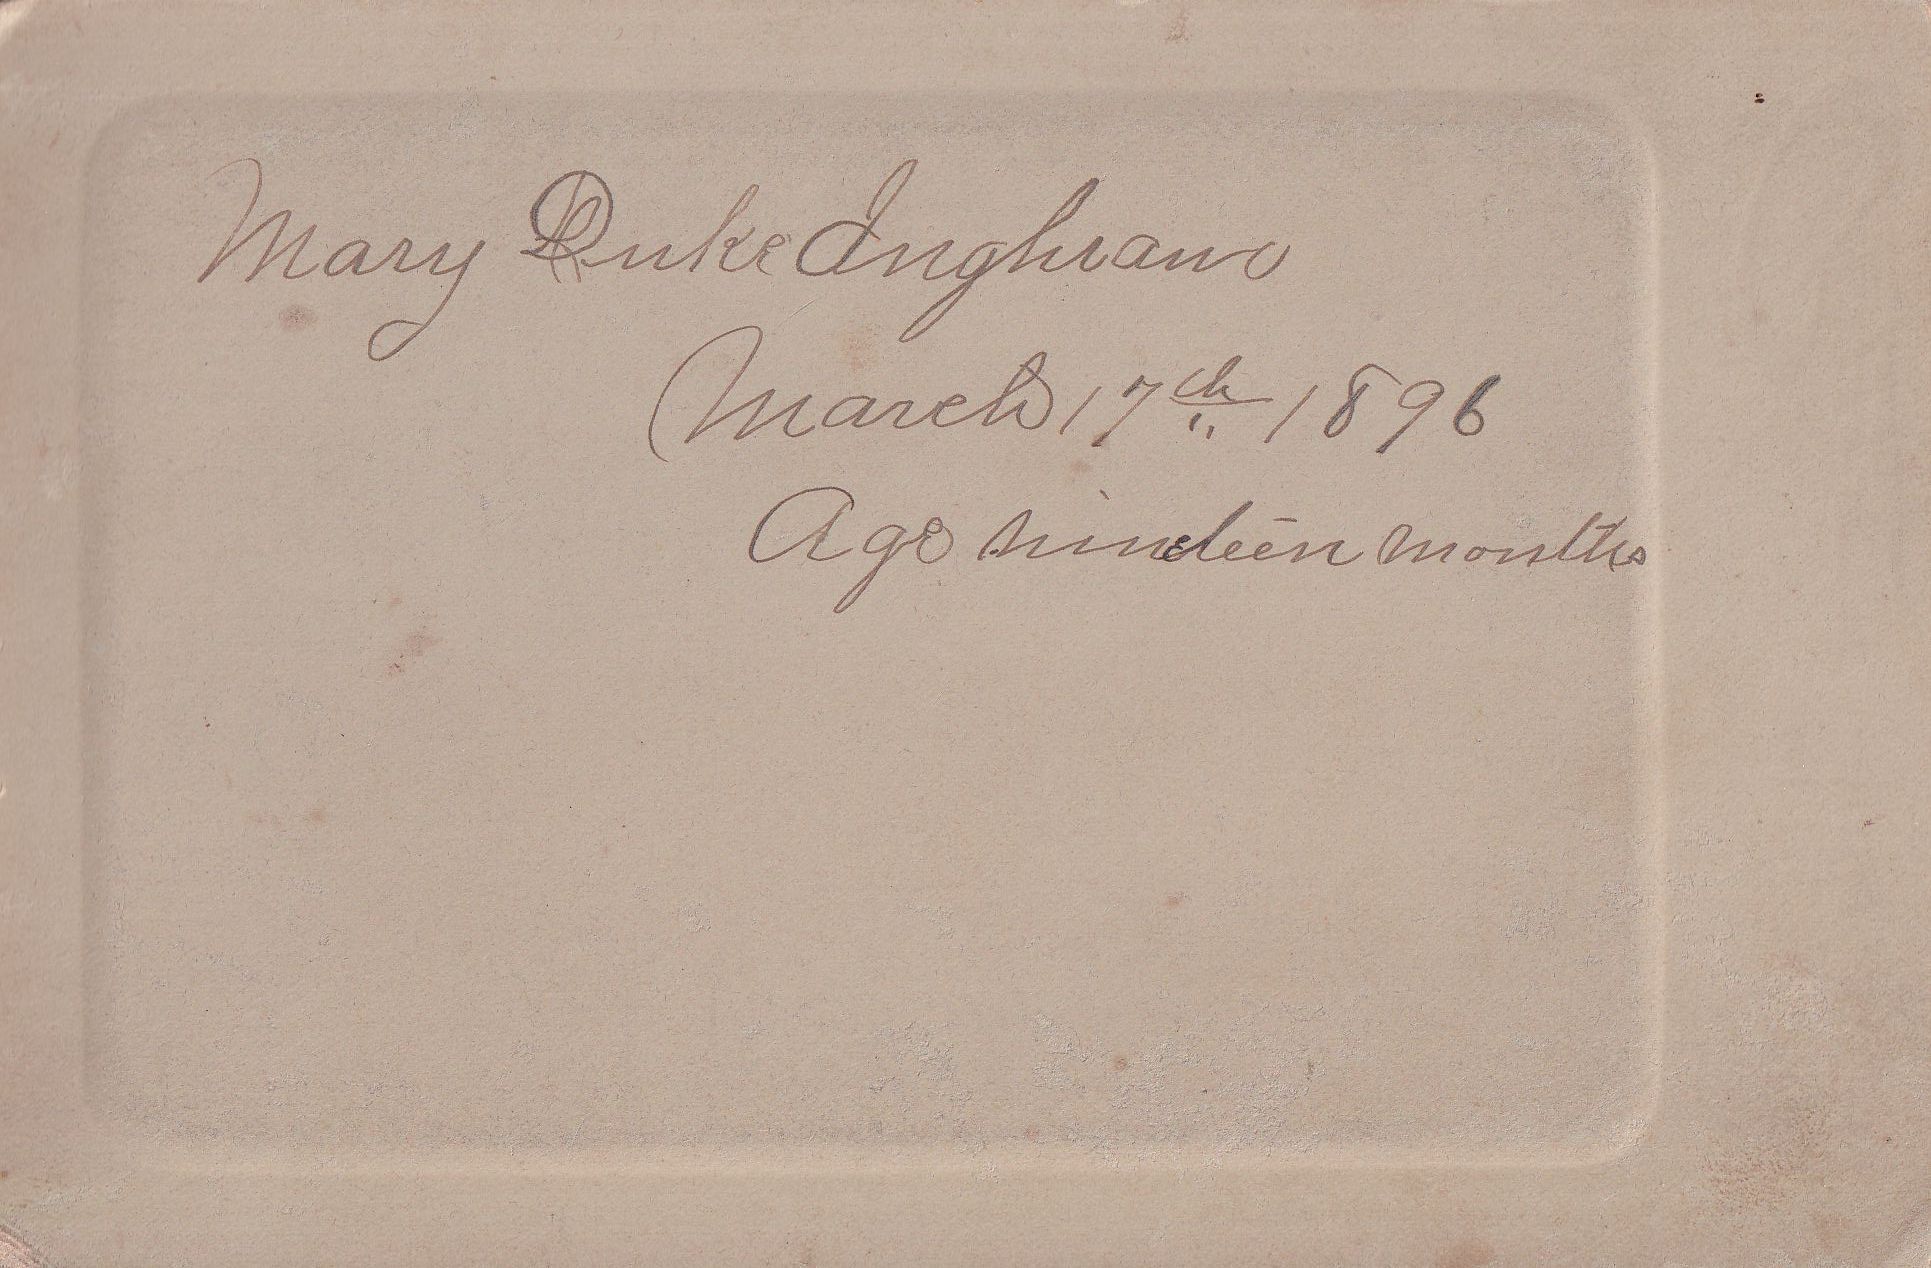 Mary Duke Inghram
March 17th 1896
Age nineteen months